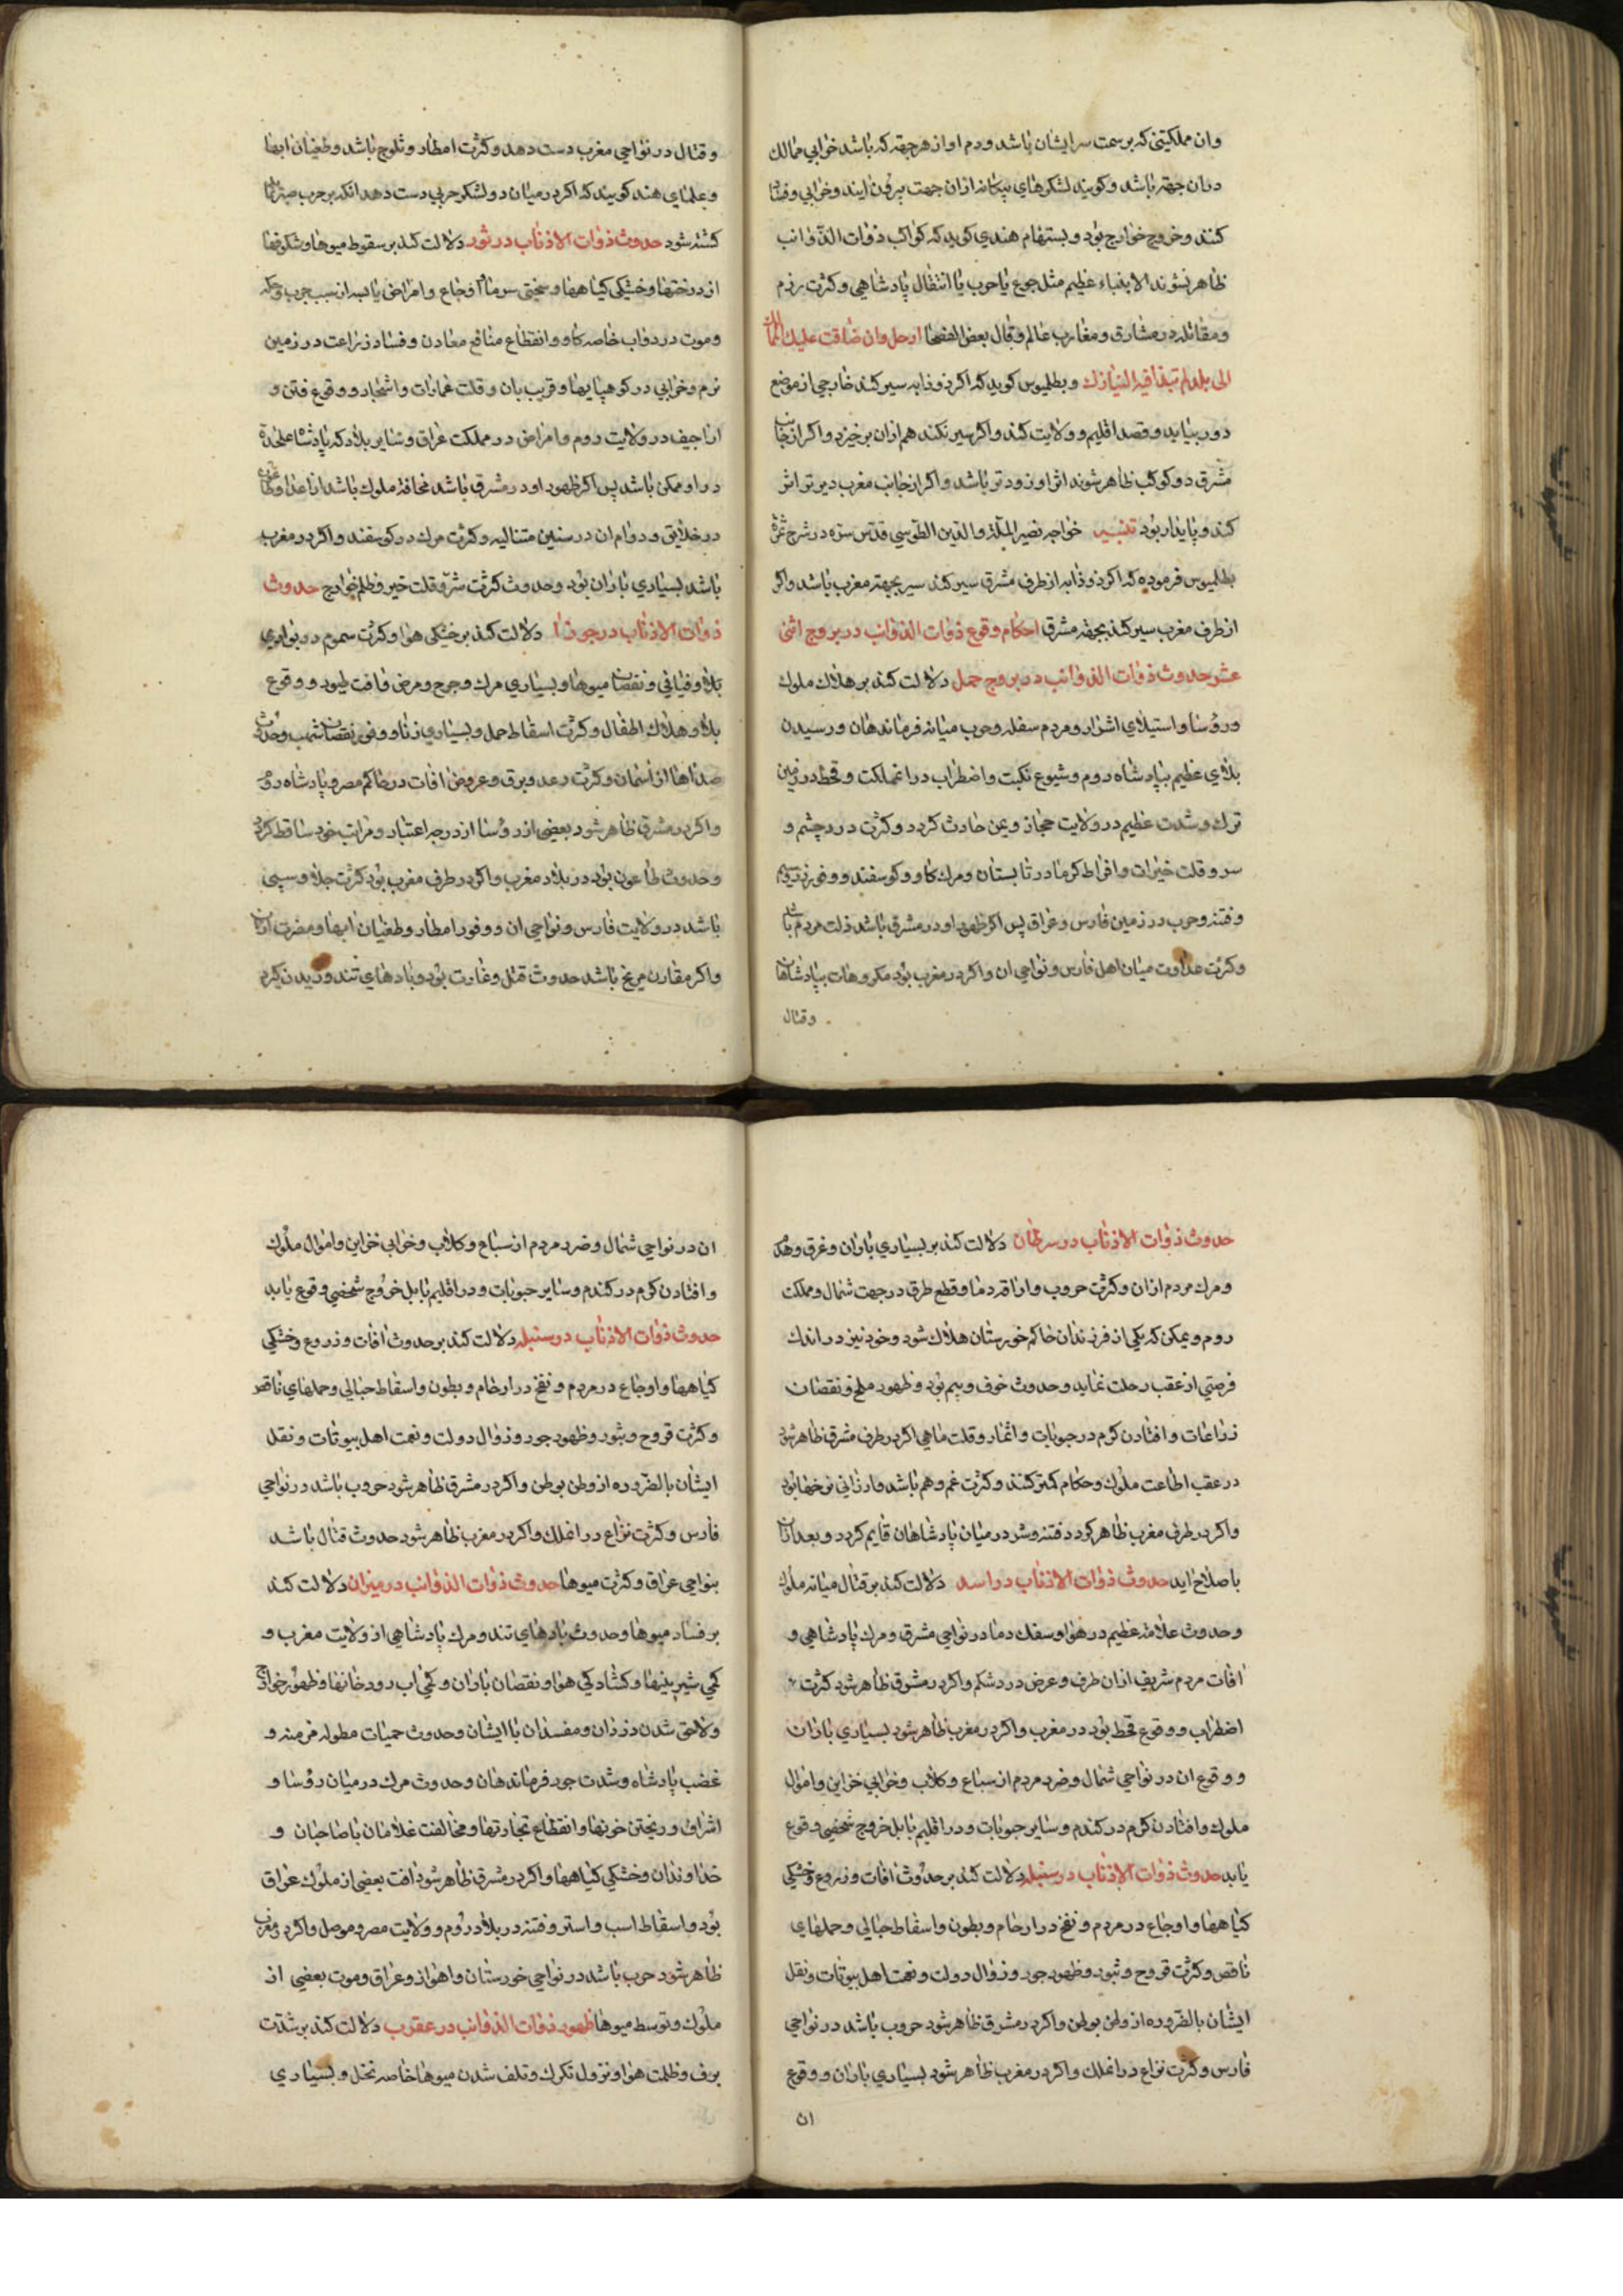 وان مملکتی که بر سمت سر ایشان باشد ودم او از هر جهة که باشد خرابی ممالک
دران جهة باشد وکویند لشکرهای بیکانه ازان جهت بیرون ایند وخرابی وفساد
کنند وخروج خوارج بود وبستهام هندی کوید که کواکب ذوات الذوانب
ظاهر نشوند الا بغباء عظیم مثل جوع یا حرب یا انتقال پادشاهی وکثرت رزم
ومقاتله در مشارق ومغارب عالم وقال بعض الفصحا ارحل وان ضاقت علیک
الی بلد لم تبد فیه النیازک وبطلمیوس کوید که اکر ذو ذابه سیر کند خارجی از موضع
دور بیاید وقصد اقلیم وولایت کند واکر سیر نکند هم ازان برخیزد واکر از جانب
مشرق دو کوکب ظاهر شوند اثر او زودتر باشد واکر از جانب مغرب دیرتر اثر
کند وپایدار بود تنبیه خواجه نصیر الملة والدین الطوسی قدس سره در شرح ثمرة
بطلمیوس فرموده که اکر ذو ذابه از طرف مشرق سیر کند سیر بجهة مغرب باشد واکر
از طرف مغرب سیر کند بجهة مشرق احکام وقوع ذوات الذوانب در بروج اثنی
عشر حدوث ذوات الذوانب در بروج حمل دلالت کند بر هلاک ملوک
ورؤسا واستیلای اشرار ومردم سفله وحرب میانه فرماندهان ورسیدن
بلای عظیم بپادشاه روم وشیوع نکبت واضطراب دران مملکت وقحط در زمین
ترک وشدت عظیم در ولایت حجاز ویمن حادث کردد وکثرت درد چشم و
سر وقلت خیرات وافراط کرما در تابستان ومرک کاو وکوسفند ووفور
وفتنه وحرب در زمین فارس وعراق پس اکر ظهور او در مشرق باشد ذلت مردم باشد
وکثرت عداوت میان اهل فارس ونواحی ان واکر در مغرب بود مکروهات بپادشاهان
وقتال
وقتال در نواحی مغرب دست دهد وکثرت امطار وثلوج باشد وطغیان ابها
وعلمای هند کویند که اکر در میان دو لشکر حربی دست دهد انکه بر حرب
کشته شود حدوث ذوات الاذناب در ثور دلالت کند بر سقوط میوها وشکوفها
از درختها وخشکی کیاهها وسختی سرما واوجاع وامراض یابسه از سبب جرب وحکه
وموت در دواب خاصه کاو وانقطاع منافع معادن وفساد زراعت در زمین
نرم وخرابی در کوهپایها وقریب بان وقلت عمارات واشجار ووقوع فتن و
اراجیف در ولایت روم وامراض در مملکت عراق وسایر بلاد که پادشاه علیحدة
در او ممکن باشد پس اکر ظهور او در مشرق باشد مخافة ملوک باشد از اعدا
در خلایق ودوام ان در سنین متتالیه وکثرت مرک در کوسفند واکر در مغرب
باشد بسیاری باران بود وحدوث کثرت شر وقلت خیر وظلم خوارج حدوث
ذوات الاذناب در جوزا دلالت کند بر خشکی هوا وکثرت سموم در بوادی
بلاد وفیافی ونقصان میوها وبسیاری مرک وجرح ومرض وافت طیور ووقوع
بلا وهلاک اطفال وکثرت اسقاط حمل وبسیاری زنا ووفور نقصان شهب وحدوث
صداها از آسمان وکثرت رعد وبرق وعروض افات در حاکم مصر وپادشاه روم
واکر در مشرق ظاهر شود بعضی از رؤسا از درجه اعتبار ومراتب خود ساقط کردد
وحدوث طاعون بود در بلاد مغرب واکر در طرف مغرب بود کثرت جلا وسبی
باشد در ولایت فارس ونواحی ان ووفور امطار وطغیان ابها ومضرت ازان
واکر مقارن مریخ باشد حدوث قتل وغارت بود وبادهای تند وزیدن کیرد
حدوث ذوات الاذناب در سرطان دلالت کند بر بسیاری باران وغرق وهدم
ومرک مردم ازان وکثرت حروب واراقه دما وقطع طرق در جهت شمال ومملکت
روم ویمکن که یکی از فرزندان حاکم خوزستان هلاک شود وخود نیز در اندک
فرصتی از عقب رحلت نماید وحدوث خوف وبیم بود وظهور ملخ ونقصان
زراعات وافتادن کرم در حبوبات واثمار وقلت ماهی اکر در طرف مشرق ظاهر شود
در عقب اطاعت ملوک وحکام کمتر کنند وکثرت غم وهم باشد وارزانی نرخها بود
واکر در طرف مغرب ظاهر کردد فتنه وشر در میان پادشاهان قایم کردد وبعد ازان
باصلاح اید حدوث ذوات الاذناب در اسد دلالت کند بر قتال میانه ملوک
وحدوث علامة عظیم در هوا وسفک دما در نواحی مشرق ومرک پادشاهی و
افات مردم شریف ازان طرف وعرض درد شکم واکر در مشرق ظاهر شود کثرت
اضطراب ووقوع قحط بود در مغرب واکر در مغرب ظاهر شود بسیاری باران
ووقوع ان در نواحی شمال وضرر مردم از سباع وکلاب وخرابی خزاین واموال
ملوک وافتادن کرم در کندم وسایر حبوبات ودر اقلیم بابل خروج شخصی وقوع
یابد حدوث ذوات الاذناب در سنبله دلالت کند بر حدوث افات وزروع وخشکی
کیاهها واوجاع در مردم ونفخ در ارحام وبطون واسقاط حبالی وحملهای
ناقص وکثرت قروح وبثور وظهور جور وزوال دولت ونعمت اهل بیوتات ونقل
ایشان بالضروره از وطن بوطن واکر در مشرق ظاهر شود حروب باشد در نواحی
فارس وکثرت نزاع دران ملک واکر در مغرب ظاهر شود بسیاری باران ووقوع
ان
ان در نواحی شمال وضرر مردم از سباع وکلاب وخرابی خزاین واموال ملوک
وافتادن کرم در کندم وسایر حبوبات ودر اقلیم بابل خروج شخصی وقوع یابد
حدوث ذوات الاذناب در سنبله دلالت کند بر حدوث افات وزروع وخشکی
کیاهها واوجاع در مردم ونفخ در ارحام وبطون واسقاط حبالی وحملهای ناقص
وکثرت قروح وبثور وظهور جور وزوال دولت ونعمت اهل بیوتات ونقل
ایشان بالضروره از وطن بوطن واکر در مشرق ظاهر شود حروب باشد در نواحی
فارس وکثرت نزاع دران ملک واکر در مغرب ظاهر شود حدوث قتال باشد
بنواحی عراق وکثرت میوها حدوث ذوات الذوانب در میزان دلالت کند
بر فساد میوها وحدوث بادهای تند ومرک پادشاهی از ولایت مغرب و
کمی شیرینیها وکشادکی هوا ونقصان باران وکمی اب رودخانها وظهور خوارج
ولاحق شدن دزدان ومفسدان با ایشان وحدوث حمیات مطوله مزمنه و
غضب پادشاه وشدت جور فرماندهان وحدوث مرک در میان رؤسا و
اشراف وریختن خونها وانقطاع تجارتها ومخالفت غلامان با صاحبان و
خداوندان وخشکی کیاهها واکر در مشرق ظاهر شود افت بعضی از ملوک عراق
بود واسقاط اسب واستر وفتنه در بلاد روم وولایت مصر وموصل واکر در مغرب
ظاهر شود حرب باشد در نواحی خوزستان واهواز وعراق وموت بعضی از
ملوک وتوسط میوها ظهور ذوات الذوانب در عقرب دلالت کند بر شدت
برف وظلمت هوا ونزول تکرک وتلف شدن میوها خاصه نخل وبسیاری